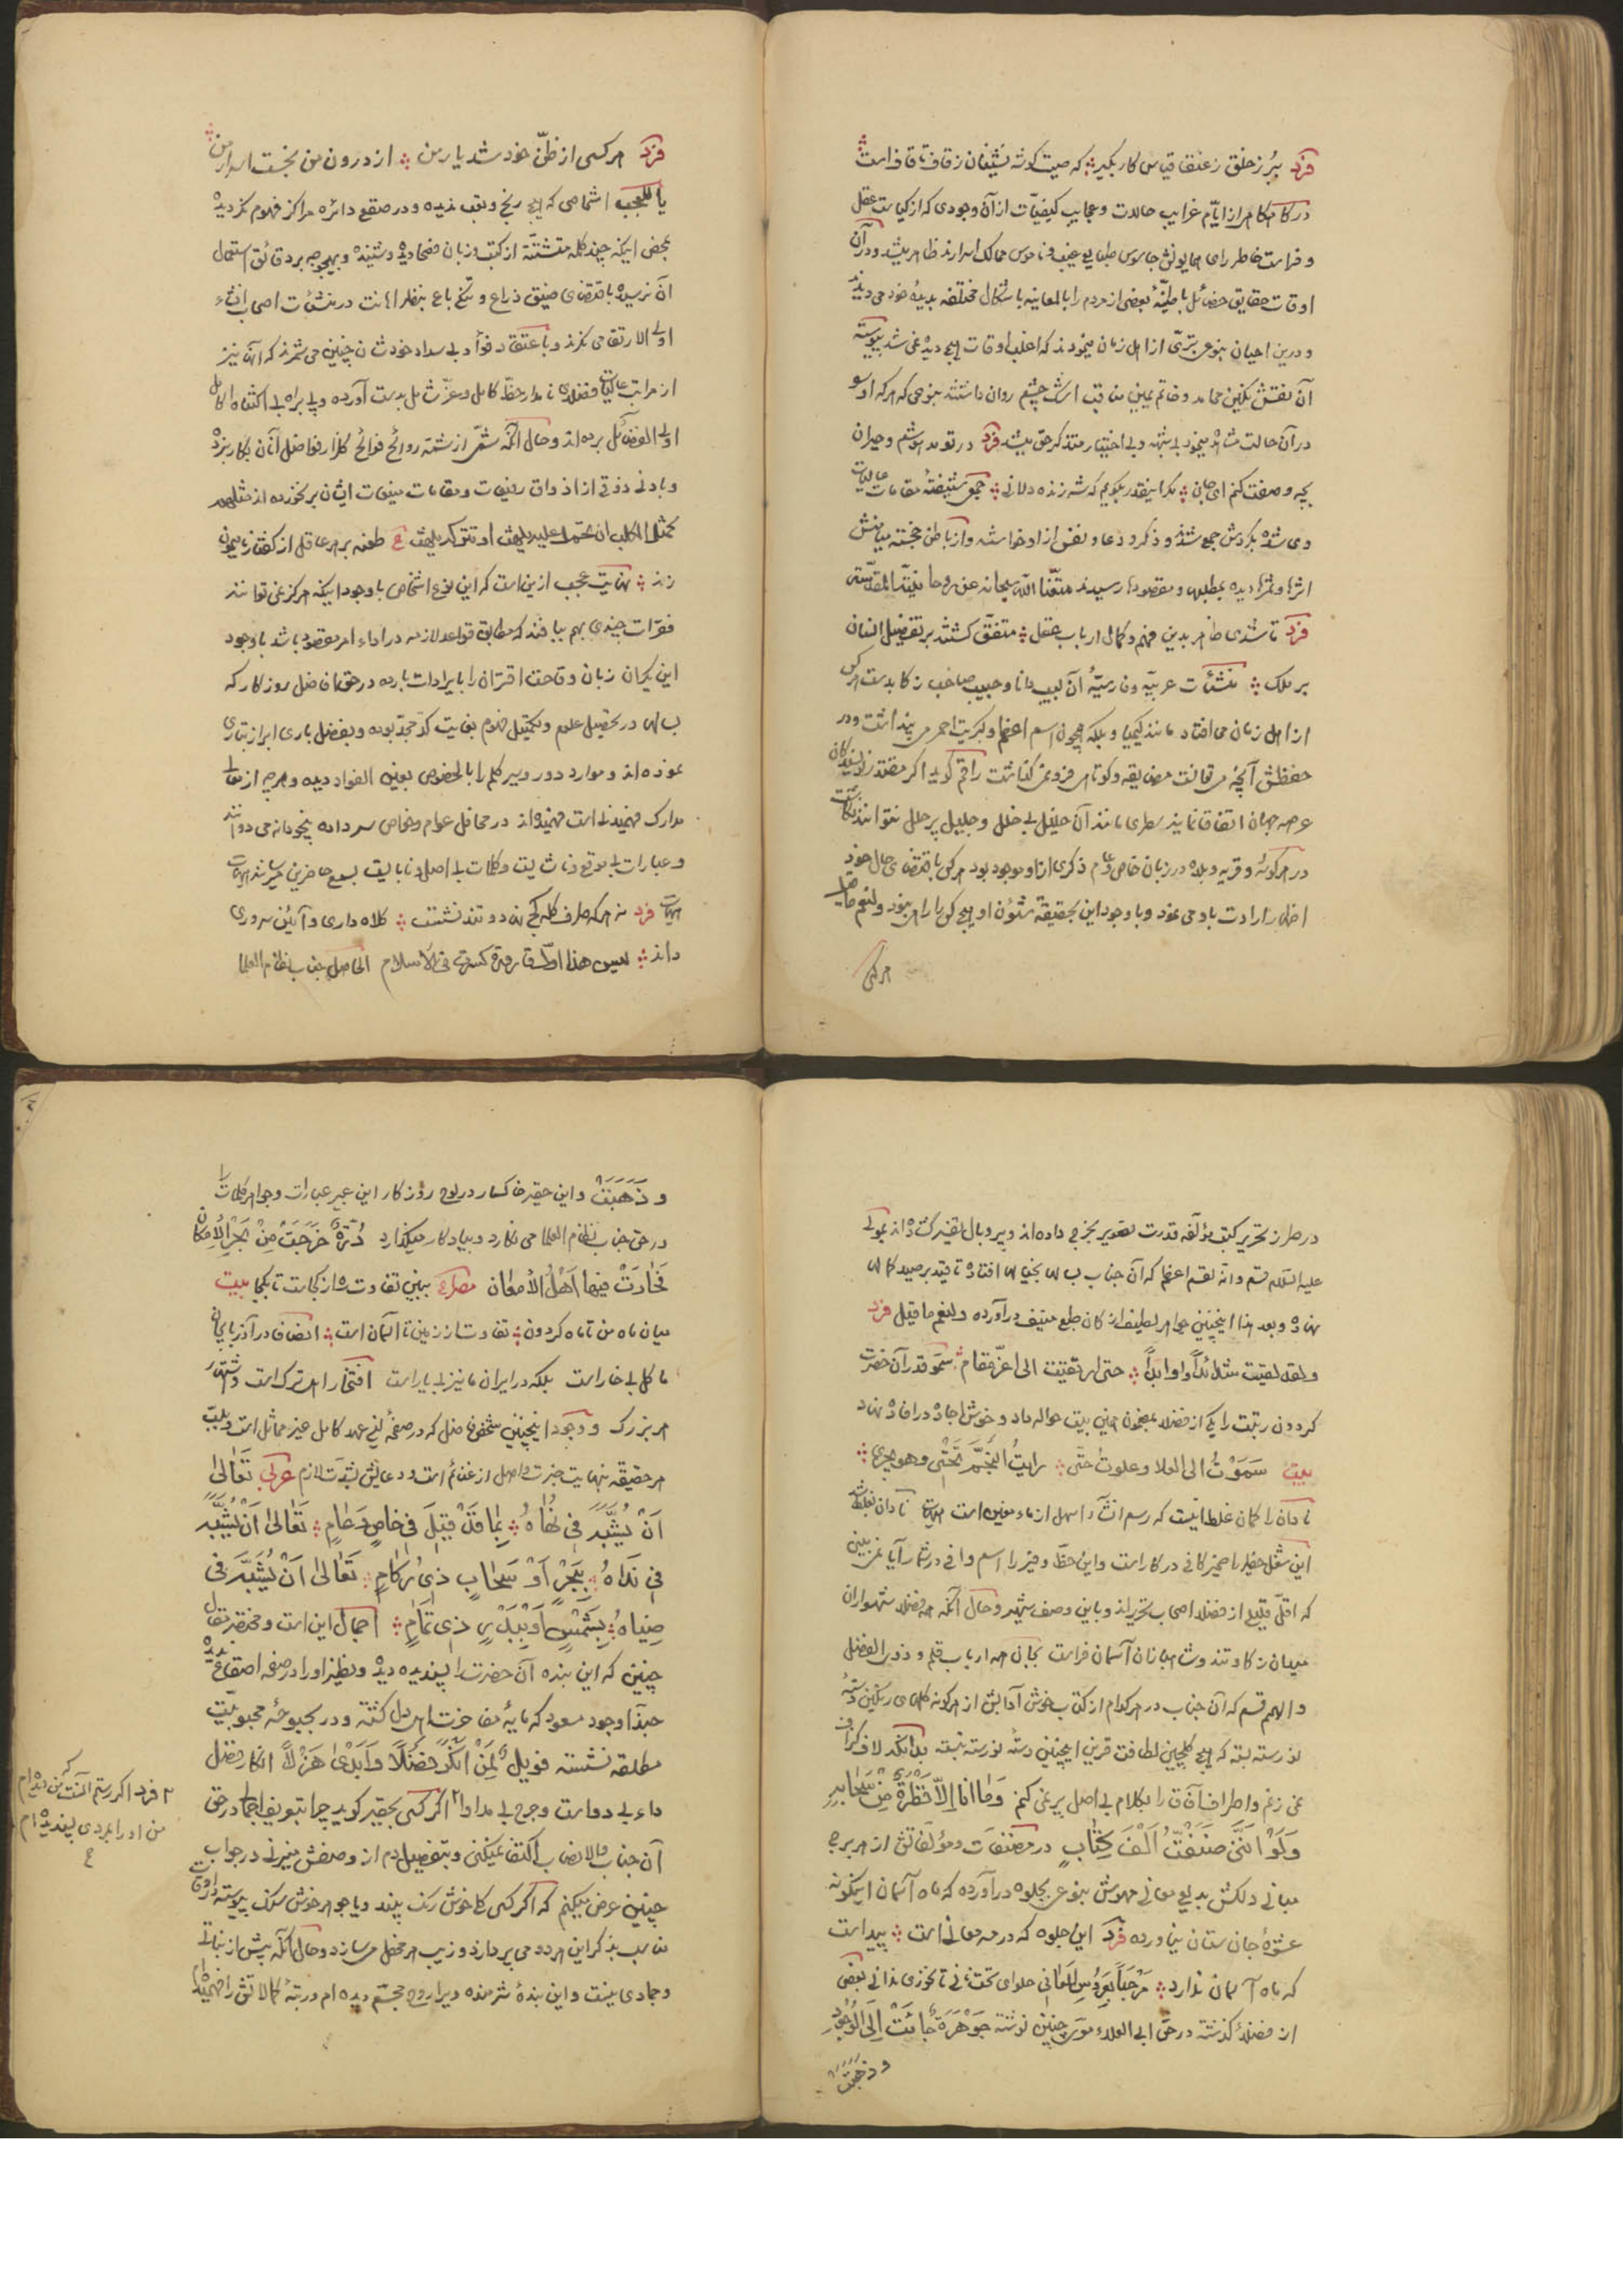 فرد ببُر ز خلق ز عنقا قیاس کار بگیر که صیت گوشه نشینان ز قاف تا قاف است
در کام ایّام غرایب حالات و عجایب کیفیّات از آن وجودی که از کیاست عقل
و فراست خاطر
اوقات حقایق خصائل باطنیّهٔ بعضی از مردم را بالمعاینه باشکال مختلفه بدیدهٔ خود می دیدند
و درین احیان بنوعی از اهل زمان میخودند که اغلب اوقات هیچ دیده نمی شد پیوسته
آن نقش نگین محامد و خاتم یمین مناقب اشک چشم روان داشتند بنوعی که هر که او را
در آن حالت مشاهده مینمود بی شبهه و بی اختیار متذکر حق میشد فرد در تو مدهوشم و حیران
بچه وصفت کنم ای جان مگر اینقدر بگویم که شه زنده دلانی جمعی شیفتهٔ مقامات عالیات
وی شده بگردش جمع شدند و ذکر و دعا و نفس از او خواسته و از باطن خجسته میامنش
اثرها و ثمرها دیده بمطلبها و مقصودها رسیدند متّعنا الله سبحانه عن روحانیته المقدسه
فرد تا شدی ظاهر بدین فهم و کمال ارباب عقل متفق گشتند بر تفضیل انسان
بر ملک منشئات عربیّه و فارسیّهٔ آن لبیب دانا و حبیب صاحب ذکا بدست هر کس
از اهل زمان می افتاد مانند کیمیا و بلکه همچون اسم اعظم و کبریت احمر می پنداشت و در
حفظش آنچه می توانست مضایقه و کوتاهی فرو نمی گذاشت راقم گوید اگر مقتدر نویسندگان
عرصه جهان اتفاقا نمایند سطری مانند آن خلیل بی خلل و جلیل پر حلل نتوانند نگاشت
در هر گوشه و قریه و بلده در زبان خاص و عام ذکری از او موجود بود هر کس باقتضای حال خود
اظهار ارادت باو می نمود و با وجود این بحقیقة شئون او هیچ کس را راه نبود و لنعم ما قیل
هر کس
فرد هر کسی از ظنّ خود شد یار من از درون من نجست اسرار من
یا للعجب اشخاصی که هیچ رنج و تعب ندیده و در صقع دائره مراکز فهوم نگردیده
بمحض اینکه چند کلمه متشتّته از کتب و زبان فصحا دیده و شنیده و بهیچوجه بر دقائق استعمال
آن نرسیده باقتضای ضیق ذراع و تنگی باع بنظر اهانت در منشئات اصحاب انشاء
اولی الارتقا می نگرند و باعتقاد فؤاد بی سداد خودشان چنین می شمرند که آنها نیز
از مراتب عالیات فضلای نامدار حظّ کامل و عزّ شامل بدست آورده و پی براه بی اکتناه
اولی الفضائل برده اند و حال آنکه شمّی از شمّه روائح فوائح گلزار فواضل آنان بکار نبرده
و بادنی ذوقی از اذواق رفیعات و مقامات منیعات ایشان برنخورده اند مثلهم
کمثل الکلب ان تحمل علیه یلهث او تترکه یلهث ع طعنه بر هر عاقل از گفتار نامیمون
زند نهایت عجب ازین است که این نوع اشخاص با وجود اینکه هرگز نمی توانند
فقرات چندی بهم ببافند که مطابق قواعد لازمه در اداء امر مقصود باشد با وجود
این یکران زبان وقاحت اقتران را بایرادات بارده در حق افاضل روزگار که
سالها در تحصیل علوم و تکمیل فهوم بغایت کدّ مجدّ بوده و بفضل باری ابراز
نموده اند و موارد دور و سیر کلم را بالخصوص بعین الفواد دیده و هر چه از معالی
مدارک فهمیدنی است فهمیده اند در محافل عوام و خاص سر داده بیخودانه می دوانند
و عبارات بی موقع ناشایست و کلمات بی اصل و نابایست بسمع حاضرین میرسانند هیهات
هیهات فرد نه هر که طرف کله کج نهاد و تند نشست کلاه داری و آئین سروری
داند لیس هذا اوّل قارورة کسرت فی الاسلام الحاصل جناب نظام العلما
در طرز تحریر کتب مؤلّفه قدرت تصویر بخرج داده اند و پر و بال تقریر گشاده اند بمولی
علیه السلام قسم و انّه لقسم اعظم که آن جناب سالها بخیالها افتاده تا قید بر صید کمالها
نهاده و بعد هذا اینچنین جواهر لطیف از کان طبع منیف درآورده و لنعم ما قیل فرد
ولقد لقیت شدائداً واوابداً حتی ارتقیت الی اعزّ مقام سموّ قدر آن حضرت
گردون رتبت را یکی از فضلا بمضمون همین بیت حواله داد و خوش اجاده در افاده نهاد
بیت سَمَوْتُ الی العلا و علوتُ حتّی رایتُ النجمَ تحتی وهو یجری
نادان را گمان غلطا اینست که رسم انشاء اسهل از ماء معین است هیهات نادان بغلط
این شغل خطیر ناصیر کافی در کار است و این حظّ وفیر را اسم وافی در شمار آیا نمی بینی
که اقلّ قلیل از فضلا اصحاب تحریرند و باین وصف شهیر و حال آنکه همه فضلا شهسواران
میدان ذکاوتند و شاهبازان آسمان فراست بجان همه ارباب قلم و ذوی الفضل
والهمم قسم که آن جناب در هر کدام از کتاب خوش آدابش از هر گونه گلهای رنگین دستهٔ
نورسته بسته که هیچ گلچین لطافت قرین اینچنین دسته نورسته نبسته بدانکه لاف گزاف
نمی زنم و اطراف آفاق را بکلام بی اصل پر نمی کنم وَمٰا انا اِلّا قَطْرَةٌ مِنْ سَحابِهِ
وَلَوْ اَنَّنی صَنَّفْتُ اَلْفَ کِتٰابٍ در مصنّفات و مؤلّفاتش از هر برج
مبانی دلکش بدایع معانی مهوش بنوعی بجلوه درآورده که ماه آسمان اینگونه
عشوهٔ جان ستان نیاورده فرد این جلوه که در مه معانی است پیداست
که ماه آسمان ندارد مَرْحَباً بِعَرُوسِ الْمَعانی حلوای تنتنانی تا نخوری ندانی بعضی
از فضلاء گذشته در حق ابی العلاء معرّی چنین نوشته جَوْهَرَةٌ جٰائَتْ اِلَی الْوُجُودِ
و ذهبت
و ذَهَبَتْ و این حقیر خاکسار در لوح روزگار این عبیر عبارات و جواهر کلمات را
در حق جناب نظام العلما می نگارد و بیادگار میگذارد دُرَّةٌ خَرَجَتْ مِنْ بَحْرِ الْاِمْکانِ
فَحٰارَتْ فیهٰا اَهْلُ الْاَمْعان مصراع ببین تفاوت ره از کجاست تا بکجا بیت
میان ماه من تا ماه گردون تفاوت از زمین تا آسمان است انصاف در آذربایجان
ما گل بی خار است بلکه در ایران ما نیز بی یار است افتخار اهل ترک است و شهرَ
هر بزرگ و وجود اینچنین شخص فاضل که در صفحهٔ لی عهد کامل غیر مماثل است
هر حقیقة بنهایت حضرت واصل از غنائم است و دعایش بشدّت لازم عربی تَعٰالیٰ
اَنْ یُشَبَّهَ فی نُهٰاهُ بِمٰا قَدْ قیٖلَ فی خاصٍ وَعٰامٍ تَعٰالیٰ اَنْ یُشَبَّهَ
فی نَدٰاهُ بِبَحْرٍ اَوْ سَحٰابٍ ذی رُکٰامٍ تَعٰالیٰ اَنْ یُشَبَّهَ فی
ضِیٰاهُ بِشَمْسٍ اَوْ بِبَدْرٍ ذی تَمٰامٍ اجمال این است و مختصر مقال
چنین که این بنده آن حضرت را پسندیده دیده و نظیر او را در صفحه اصقاع ندیده
حبّذا وجود مسعود که مایهٔ مفاخرت اهل دل گشته و در بحبوحهٔ محبوبیّت
مطلقه نشسته فَوَیْلٌ لِمَنْ اَنْکَرَ فَضْلاً وَ اَبْدیٰ هَزْلاً انکار فضل
داء بی دواست و جرح بی مداوا ۲ اگر کسی بحقیر گوید چرا بتوصیف اجمالی در حق
آن جناب والانصاب اکتفا نمیکنی و بتفصیل دم از وصفش میزنی در جواب
چنین عرض میکنم که اگر کسی گلها خوش رنگ بیند و یا جواهر خوش سنگ پیوسته در اوقات
مناسب بذکر این هر دو می پردازد و زیب هر محفل می سازد و حال آنکه بیش از نباتی
و جمادی نیست و این بندهٔ شرمنده ویرا روح مجسّم دیده ام و رتبهٔ کمالاتش را فهمیده ام
۲ فرد اگر رستم آنست که من دیده ام
من او را بمردی پسندیده ام
ع